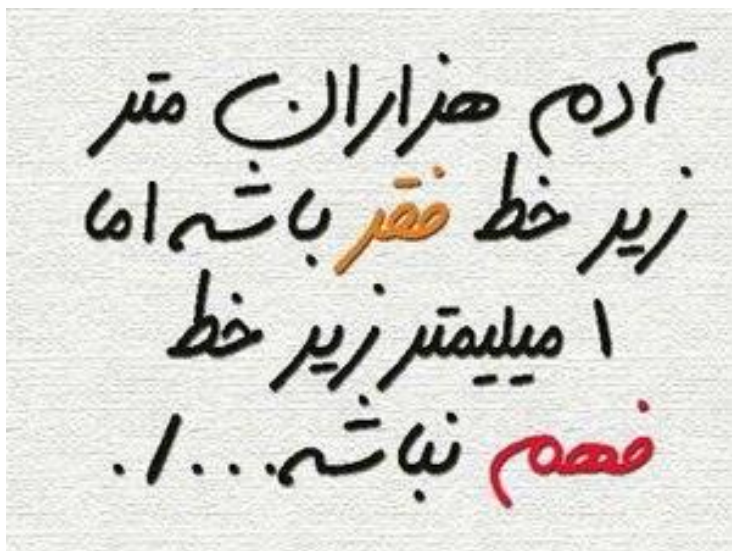 آدم هزاران متر
زیر خط فقر باشه اما
۱ میلیمتر زیر خط
فهم نباشه...!.